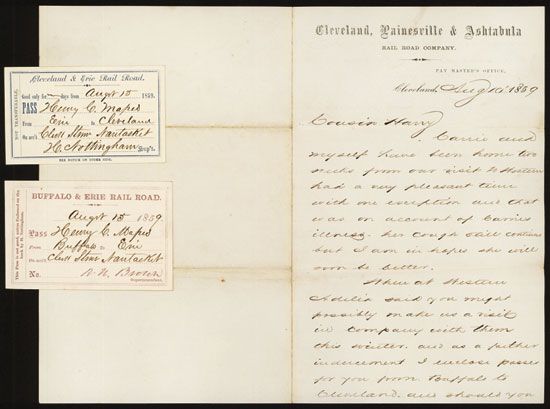 Cleveland, Painesville & Ashtabula
RAIL ROAD COMPANY.
PAY MASTER'S OFFICE,
Cleveland, Aug 1859
Cousin Harry
Carrie and
myself have been home two
weeks from our visit to
had a very pleasant time
with one exception and that
was on account of Carries
illness, her cough still continues
but I am in hopes she will
soon be better.
When at
Adelia said you might
possibly make us a visit
in company with them
this winter. and as a further
inducement I enclose passes
for you from Buffalo to
Cleveland. and should you
Cleveland & Erie Rail Road.
NOT TRANSFERABLE.
Good only for days from Augt 15 1859.
PASS Henry C. Mapes
From Erie to Cleveland
On acc't Chs Nantasket
H. Nottingham Sup't.
SEE NOTICE ON OTHER SIDE.
BUFFALO & ERIE RAIL ROAD.
Augt 15 1859.
Pass Henry C. Mapes
From Buffalo to Erie
On acc't Nantasket
No. R. N. Brown
Superintendent.